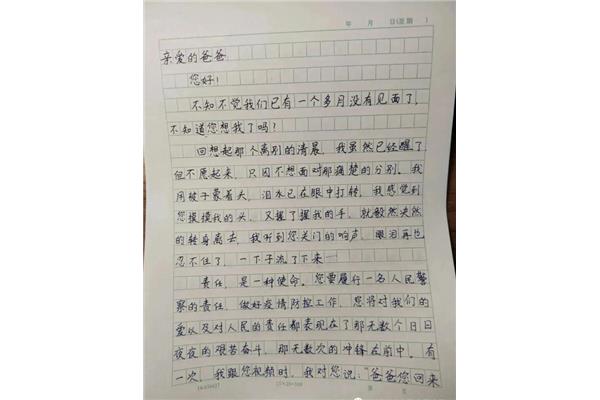 年 月 日(星期 )
亲爱的爸爸
您好!
不知不觉我们已有一个多月没有见面了,
不知道您想我了吗?
回想起那个离别的清晨,我虽然已经醒了
但不愿起来,只因不想面对那痛楚的分别。我
用被子蒙着头,泪水已在眼中打转,我感觉到
您摸摸我的头,又握了握我的手,就毅然决然
的转身离去,我听到您关门的响声,眼泪再也
忍不住了,一下子流了下来…
责任,是一种使命。您要履行一名人民警
察的责任,做好疫情防控工作,您将对我们的
爱以及对人民的责任都表现在了那无数个日日
夜夜的艰苦奋斗,那无数次的冲锋在前中。有
一次,我跟您视频时,我对您说:"爸爸您回来
第 页